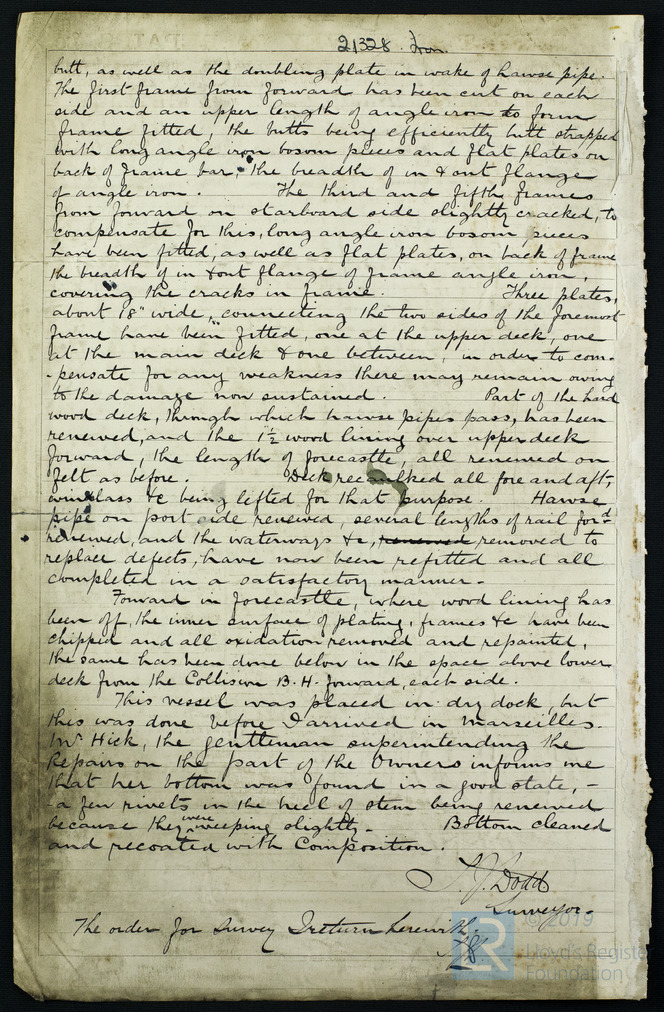 21328 Iron.
butt, as well as the doubling plate in wake of hawse pipe.
The first frame from forward has been cut on each
side and an upper length of angle iron to form
frame fitted, the butts being efficiently butt strapped
with long angle iron bosom pieces and flat plates on
back of frame bar, the breadth of in & out flange
of angle iron. The third and fifth frames
from forward on starboard side slightly cracked, to
compensate for this, long angle iron bosom pieces
have been fitted, as well as flat plates, on back of frame
the breadth of in & out flange of frame angle iron,
covering the cracks in frame. Three plates,
about 18" wide, connecting the two sides of the foremost
frame have been fitted, one at the upper deck, one
at the main deck & one between, in order to com-
-pensate for any weakness there may remain owing
to the damage now sustained. Part of the hard
wood deck, through which hawse pipes pass, has been
renewed, and the 1½ wood lining over upper deck
forward, the length of forecastle, all renewed on
felt as before. Deck recaulked all fore and aft,
windlass &c being lifted for that purpose. Hawse
pipe on port side renewed, several lengths of rail ford
renewed, and the waterways &c, renewed removed to
replace defects, have now been refitted and all
completed in a satisfactory manner.-
Forward in forecastle, where wood lining has
been off, the inner surface of plating, frames &c have been
chipped and all oxidation removed and repainted,
the same has been done below in the space above lower
deck from the Collision B.H. forward, each side.
This vessel was placed in dry dock, but
this was done before I arrived in Marseilles.
Mr Hick, the gentleman superintending the
Repairs on the part of the Owners informs me
that her bottom was found in a good state, -
- a few rivets in the heel of stem being renewed
because they were weeping slightly.- Bottom cleaned
and recoated with Composition.
T. J. Dodd
Surveyor.
The order for Survey I return herewith.
© 2019
LR
Lloyd's Register
Foundation